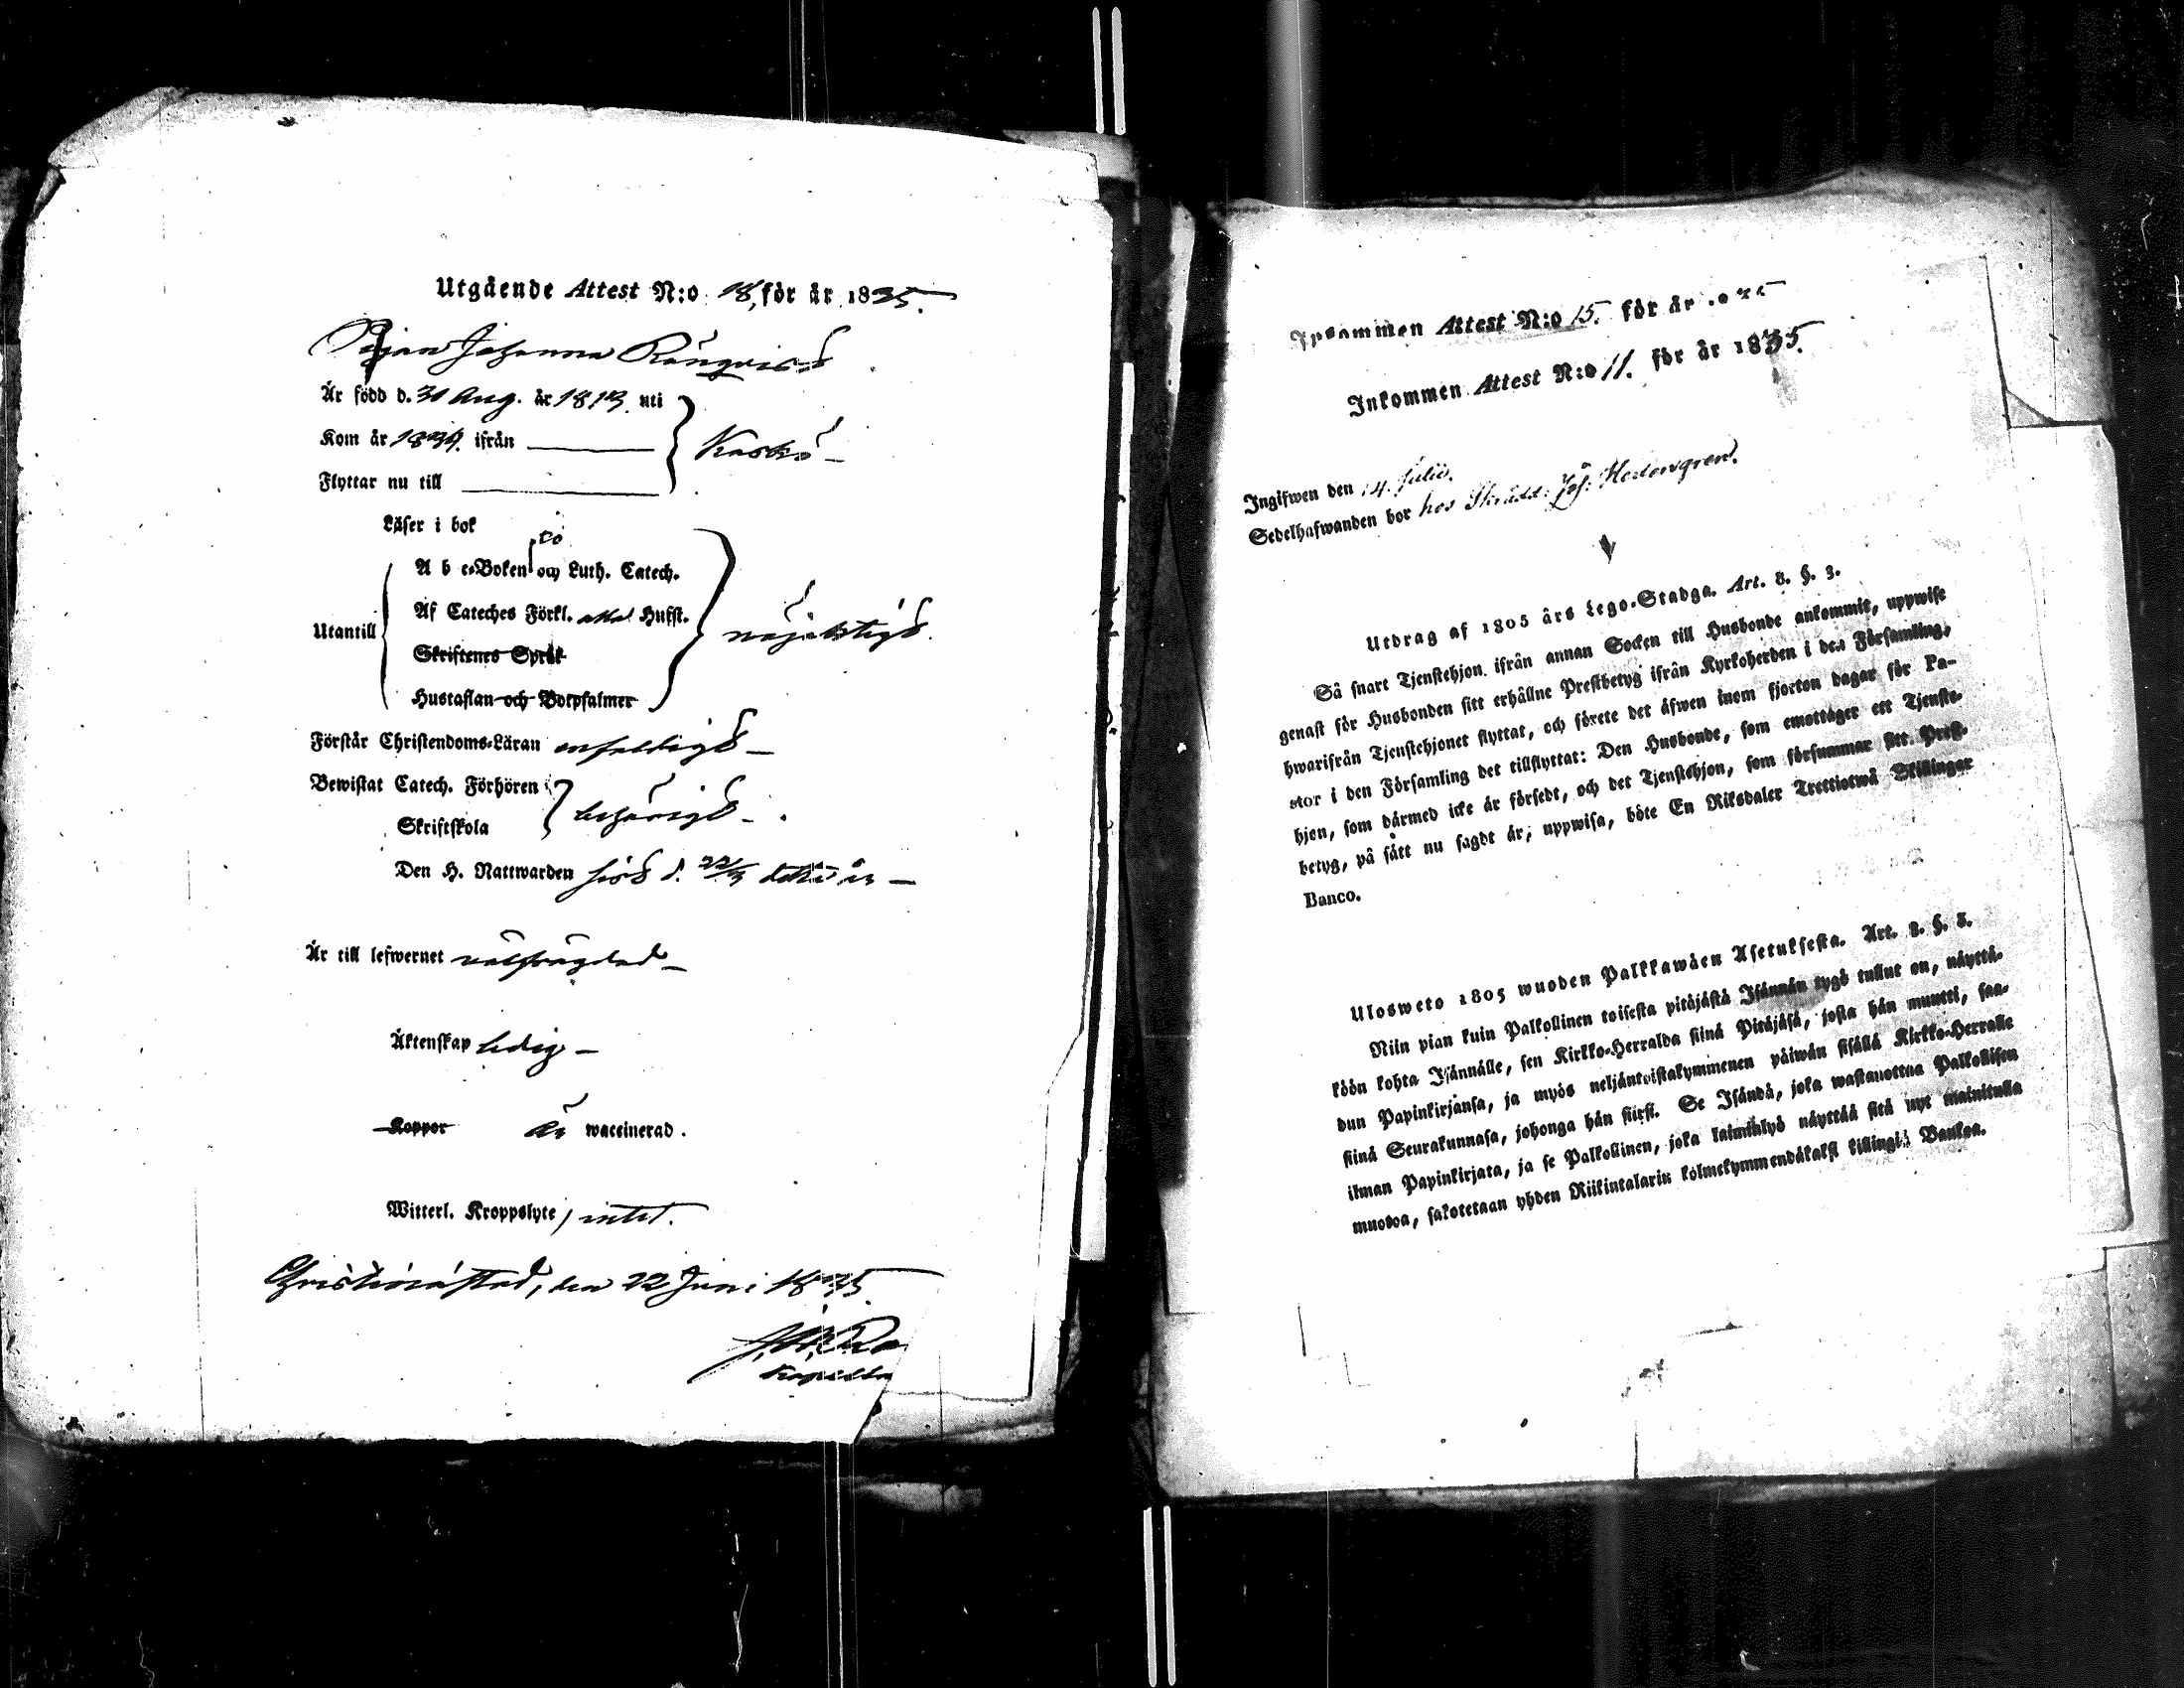 Utgående Attest N:o 18, för år 1835.
Pigan Johanna Rångvist
Är född d. 30 Aug. år 1813 uti
Kom år 1834 ifrån
Kaskö
Flyttar nu till
Läser i bok
A b c-Boken och Luth. Catech.
Af Cateches Förkl. Husst.
Utantill
nöjaktigt.
Skriftenes Språk
Hustaflan och Botpsalmer
Förstår Christendoms-Läran enfaldigt
Bewistat Catech. Förhören
behörigt
Skriftskola
Den H. Nattwarden sist d. 22/3 detta år
Är till lefwernet välfrägdad
Äktenskap ledig
Koppor är waccinerad.
Witterl. Kroppslyte, intet.
Christinæstad, den 22 Juni 1835
Inkommen Attest N:o 15. för år
Inkommen Attest N:o 11. för år 1835.
Ingifwen den 14. Julii.
Sedelhafwanden bor hos Skrädd:
Utdrag af 1805 års Lego-Stadga. Art. 8. §. 3.
Så snart Tjenstehjon ifrån annan Socken till Husbonde ankommit, uppwise
genast för Husbonden sitt erhållne Prestbetyg ifrån Kyrkoherden i den Församling,
hwarifrån Tjenstehjonet flyttat, och förete det äfwen inom fjorton dagar för Pa-
stor i den Församling det tillflyttat: Den Husbonde, som emottager ett Tjenste-
hjon, som dårmed icke är försedt, och det Tjenstehjon, som försummar sitt Prest-
betyg, på sått nu sagdt år, uppwisa, böte En Riksdaler Trettiotwå Skillingar
Banco.
Ulosweto 1805 wuoden Palkkawäen Asetuksesta. Art. 8. §. 3.
Niin pian kuin Palkollinen toisesta pitäjästä Isännän tygö tullut on, näyttä-
köön kohta Isännälle, sen Kirkko-Herralda siinä Pitäjäsä, josta hän muutti, saa-
dun Papinkirjansa, ja myös neljäntoistakymmenen päiwän sisällä Kirkko-Herralle
siinä Seurakunnasa, johonga hän siirsi. Se Isändä, joka wastanottaa Palkollisen
ilman Papinkirjata, ja se Palkollinen, joka laiminlyö näyttää sitä nyt mainitulla
muotoa, sakotetaan yhden Riikintalarin kolmekymmendäkaksi killingiä Bankoa.